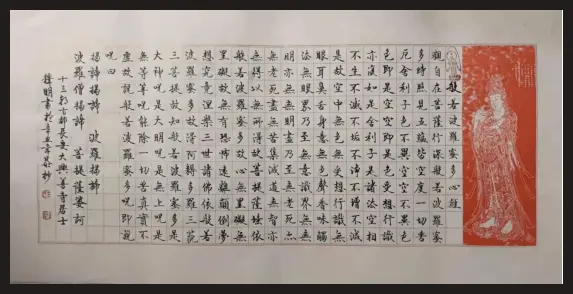 般若波羅蜜多心經
觀自在菩薩行深般若波羅蜜
多時照見五蘊皆空度一切苦
厄舍利子色不異空空不異色
色即是空空即是色受想行識
亦復如是舍利子是諸法空相
不生不滅不垢不淨不增不減
是故空中無色無受想行識無
眼耳鼻舌身意無色聲香味觸
法無眼界乃至無意識界無無
明亦無無明盡乃至無老死亦
無老死盡無苦集滅道無智亦
無得以無所得故菩提薩埵依
般若波羅蜜多故心無罣礙無
罣礙故無有恐怖遠離顛倒夢
想究竟涅槃三世諸佛依般若
波羅蜜多故得阿耨多羅三藐
三菩提故知般若波羅蜜多是
大神咒是大明咒是無上咒是
無等等咒能除一切苦真實不
虛故說般若波羅蜜多咒即說
咒曰
揭諦揭諦 波羅揭諦
波羅僧揭諦 菩提薩婆訶
十三朝古都長安大興善寺居士
明書於辛丑年